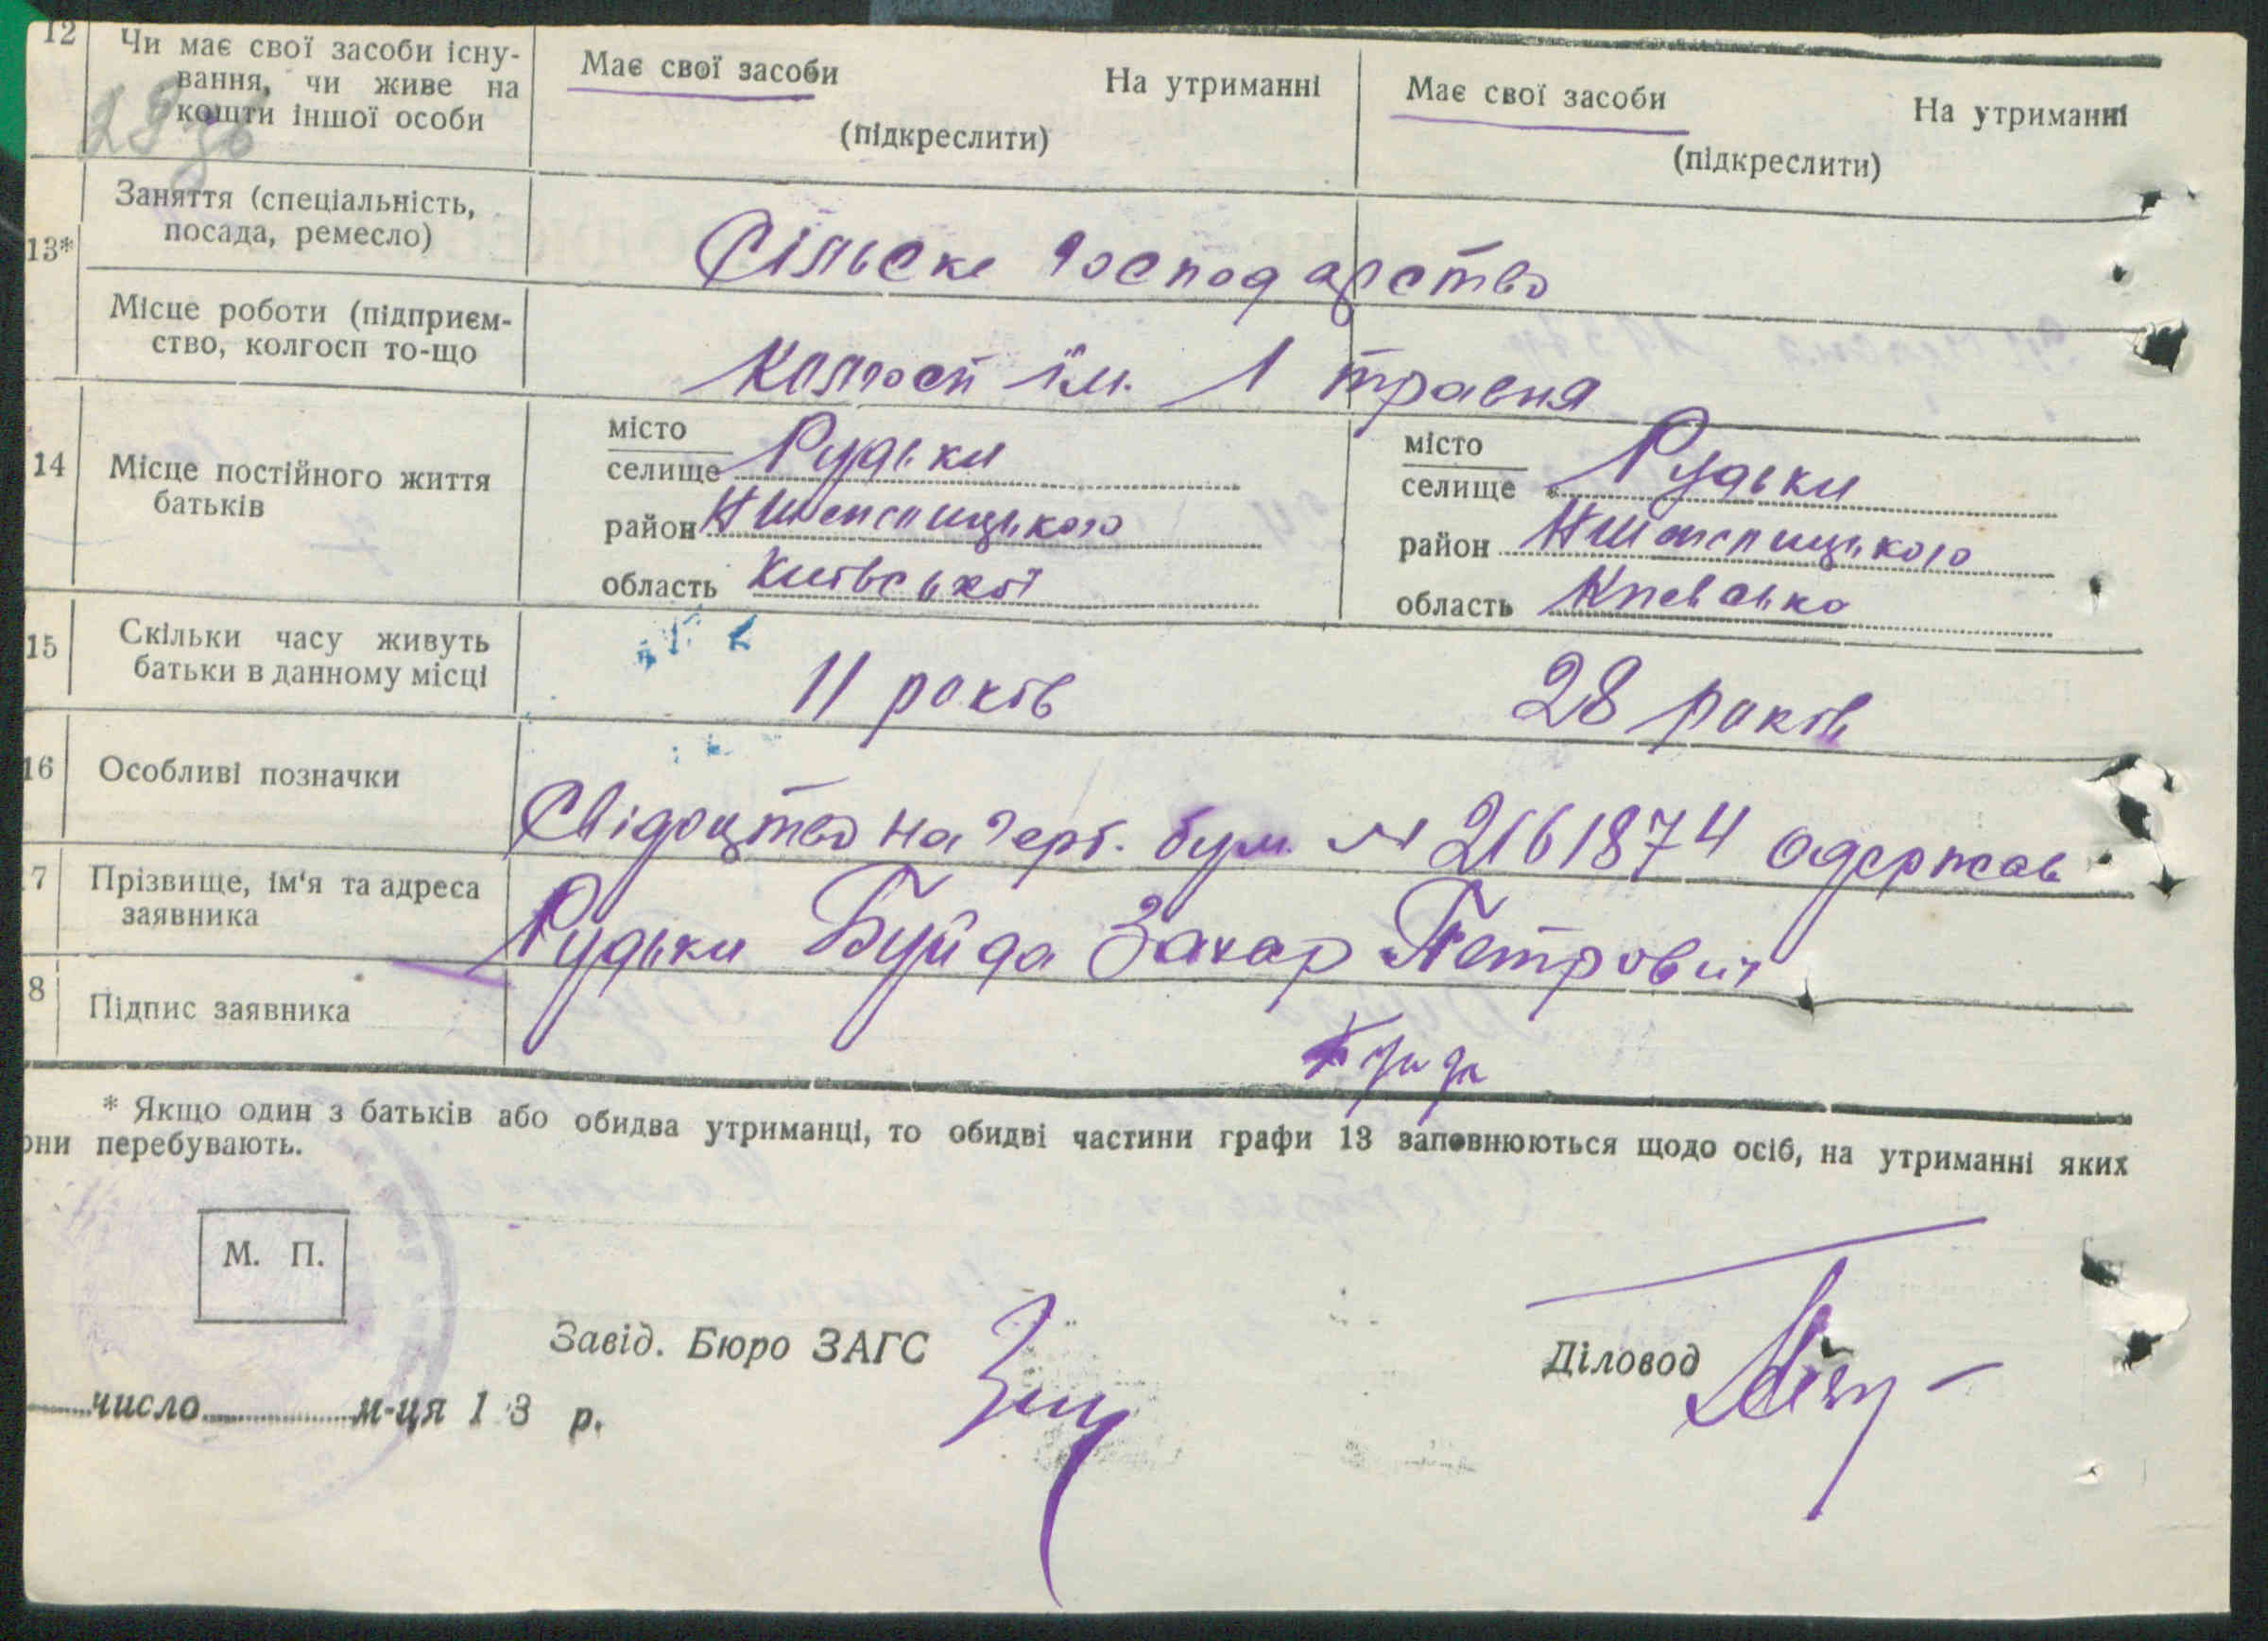 12 Чи має свої засоби існу-
вання, чи живе на
кошти іншої особи
Має свої засоби На утриманні
(підкреслити)
Має свої засоби На утриманні
(підкреслити)
13*
Заняття (спеціальність,
посада, ремесло)
Сільске господарство
Місце роботи (підприєм-
ство, колгосп то-що
Колгосп ім. 1 травня
14 Місце постійного життя
батьків
місто
селище Рудьки
район
область Київської
місто
селище Рудьки
район
область
15 Скільки часу живуть
батьки в данному місці
11 років 28 років
16 Особливі позначки
Свідоцтво на герб. бум. № 2161874 одержав
7 Прізвище, ім'я та адреса
заявника
Рудьки Буйда Захар Петрович
8 Підпис заявника
* Якщо один з батьків або обидва утриманці, то обидві частини графи 13 заповнюються щодо осіб, на утриманні яких
они перебувають.
М. П.
Завід. Бюро ЗАГС
Діловод
число м-ця 1 3 р.